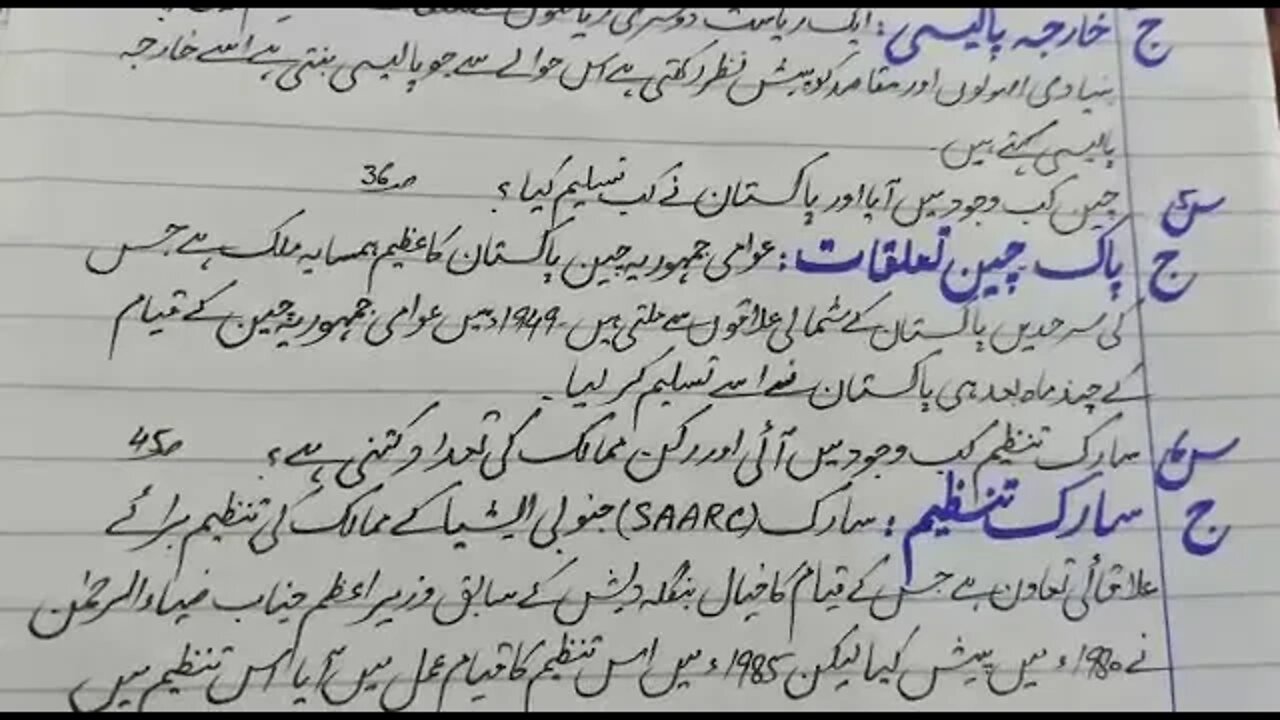 ج خارجہ پالیسی: ایک ریاست دوسری ریاستوں سے تعلقات
بنیادی اصولوں اور مقاصد کو پیش نظر رکھتی ہے اس حوالے سے جو پالیسی بنتی ہے اسے خارجہ
پالیسی کہتے ہیں۔
س5 چین کب وجود میں آیا اور پاکستان نے کب تسلیم کیا؟ ص36
ج پاک چین تعلقات: عوامی جمہوریہ چین پاکستان کا عظیم ہمسایہ ملک ہے جس
کی سرحدیں پاکستان کے شمالی علاقوں سے ملتی ہیں۔ 1949ء میں عوامی جمہوریہ چین کے قیام
کے چند ماہ بعد ہی پاکستان نے اسے تسلیم کر لیا۔
س6 سارک تنظیم کب وجود میں آئی اور رکن ممالک کی تعداد کتنی ہے؟ ص45
ج سارک تنظیم: سارک (SAARC) جنوبی ایشیا کے ممالک کی تنظیم برائے
علاقائی تعاون ہے جس کے قیام کا خیال بنگلہ دیش کے سابق وزیر اعظم جناب ضیاء الرحمٰن
نے 1980ء میں پیش کیا لیکن 1985ء میں اس تنظیم کا قیام عمل میں آیا اس تنظیم میں